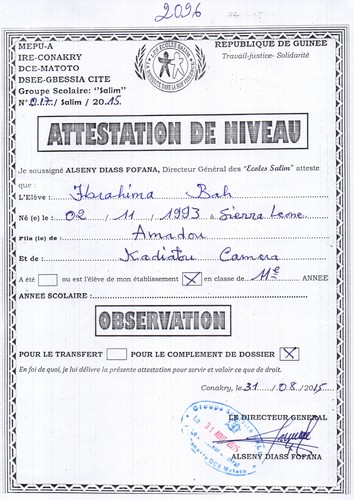 2096
MEPU-A
REPUBLIQUE DE GUINEE
IRE-CONAKRY
Travail-justice- Solidarité
DCE-MATOTO
DSEE-GBESSIA CITE
Groupe Scolaire: "Salim"
N° 017/ Salim / 2015.
LES ECOLES SALIM
ATTESTATION DE NIVEAU
Je soussigné ALSENY DIASS FOFANA, Directeur Général des "Ecoles Salim" atteste
que :
L'Elève : Ibrahima Bah
Né (e) le : 02 / 11 / 1993 à Sierra Leone
Fils (le) de : Amadou
Et de : Kadiatou Camera
A été ou est l'élève de mon établissement X en classe de 11e ANNEE
ANNEE SCOLAIRE :
OBSERVATION
POUR LE TRANSFERT POUR LE COMPLEMENT DE DOSSIER X
En foi de quoi, je lui délivre la présente attestation pour servir et valoir ce que de droit.
Conakry, le 31 / 08 / 2015
LE DIRECTEUR GENERAL
Groupe
DCE Matoto
ALSENY DIASS FOFANA